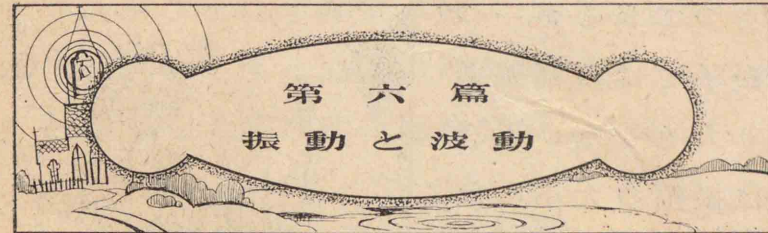 第六篇
振動と波動